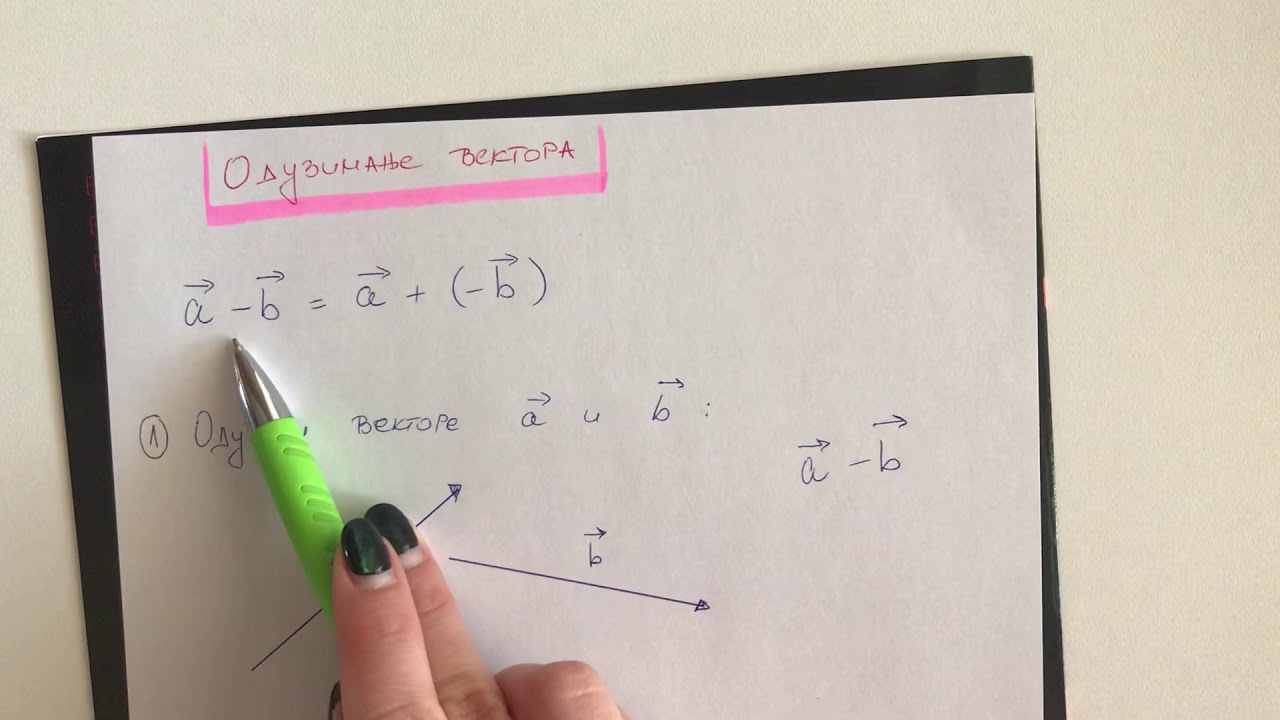 Одузимање вектора
a⃗ - b⃗ = a⃗ + (-b⃗)
① векторе a⃗ и b⃗ :
a⃗ - b⃗
b⃗